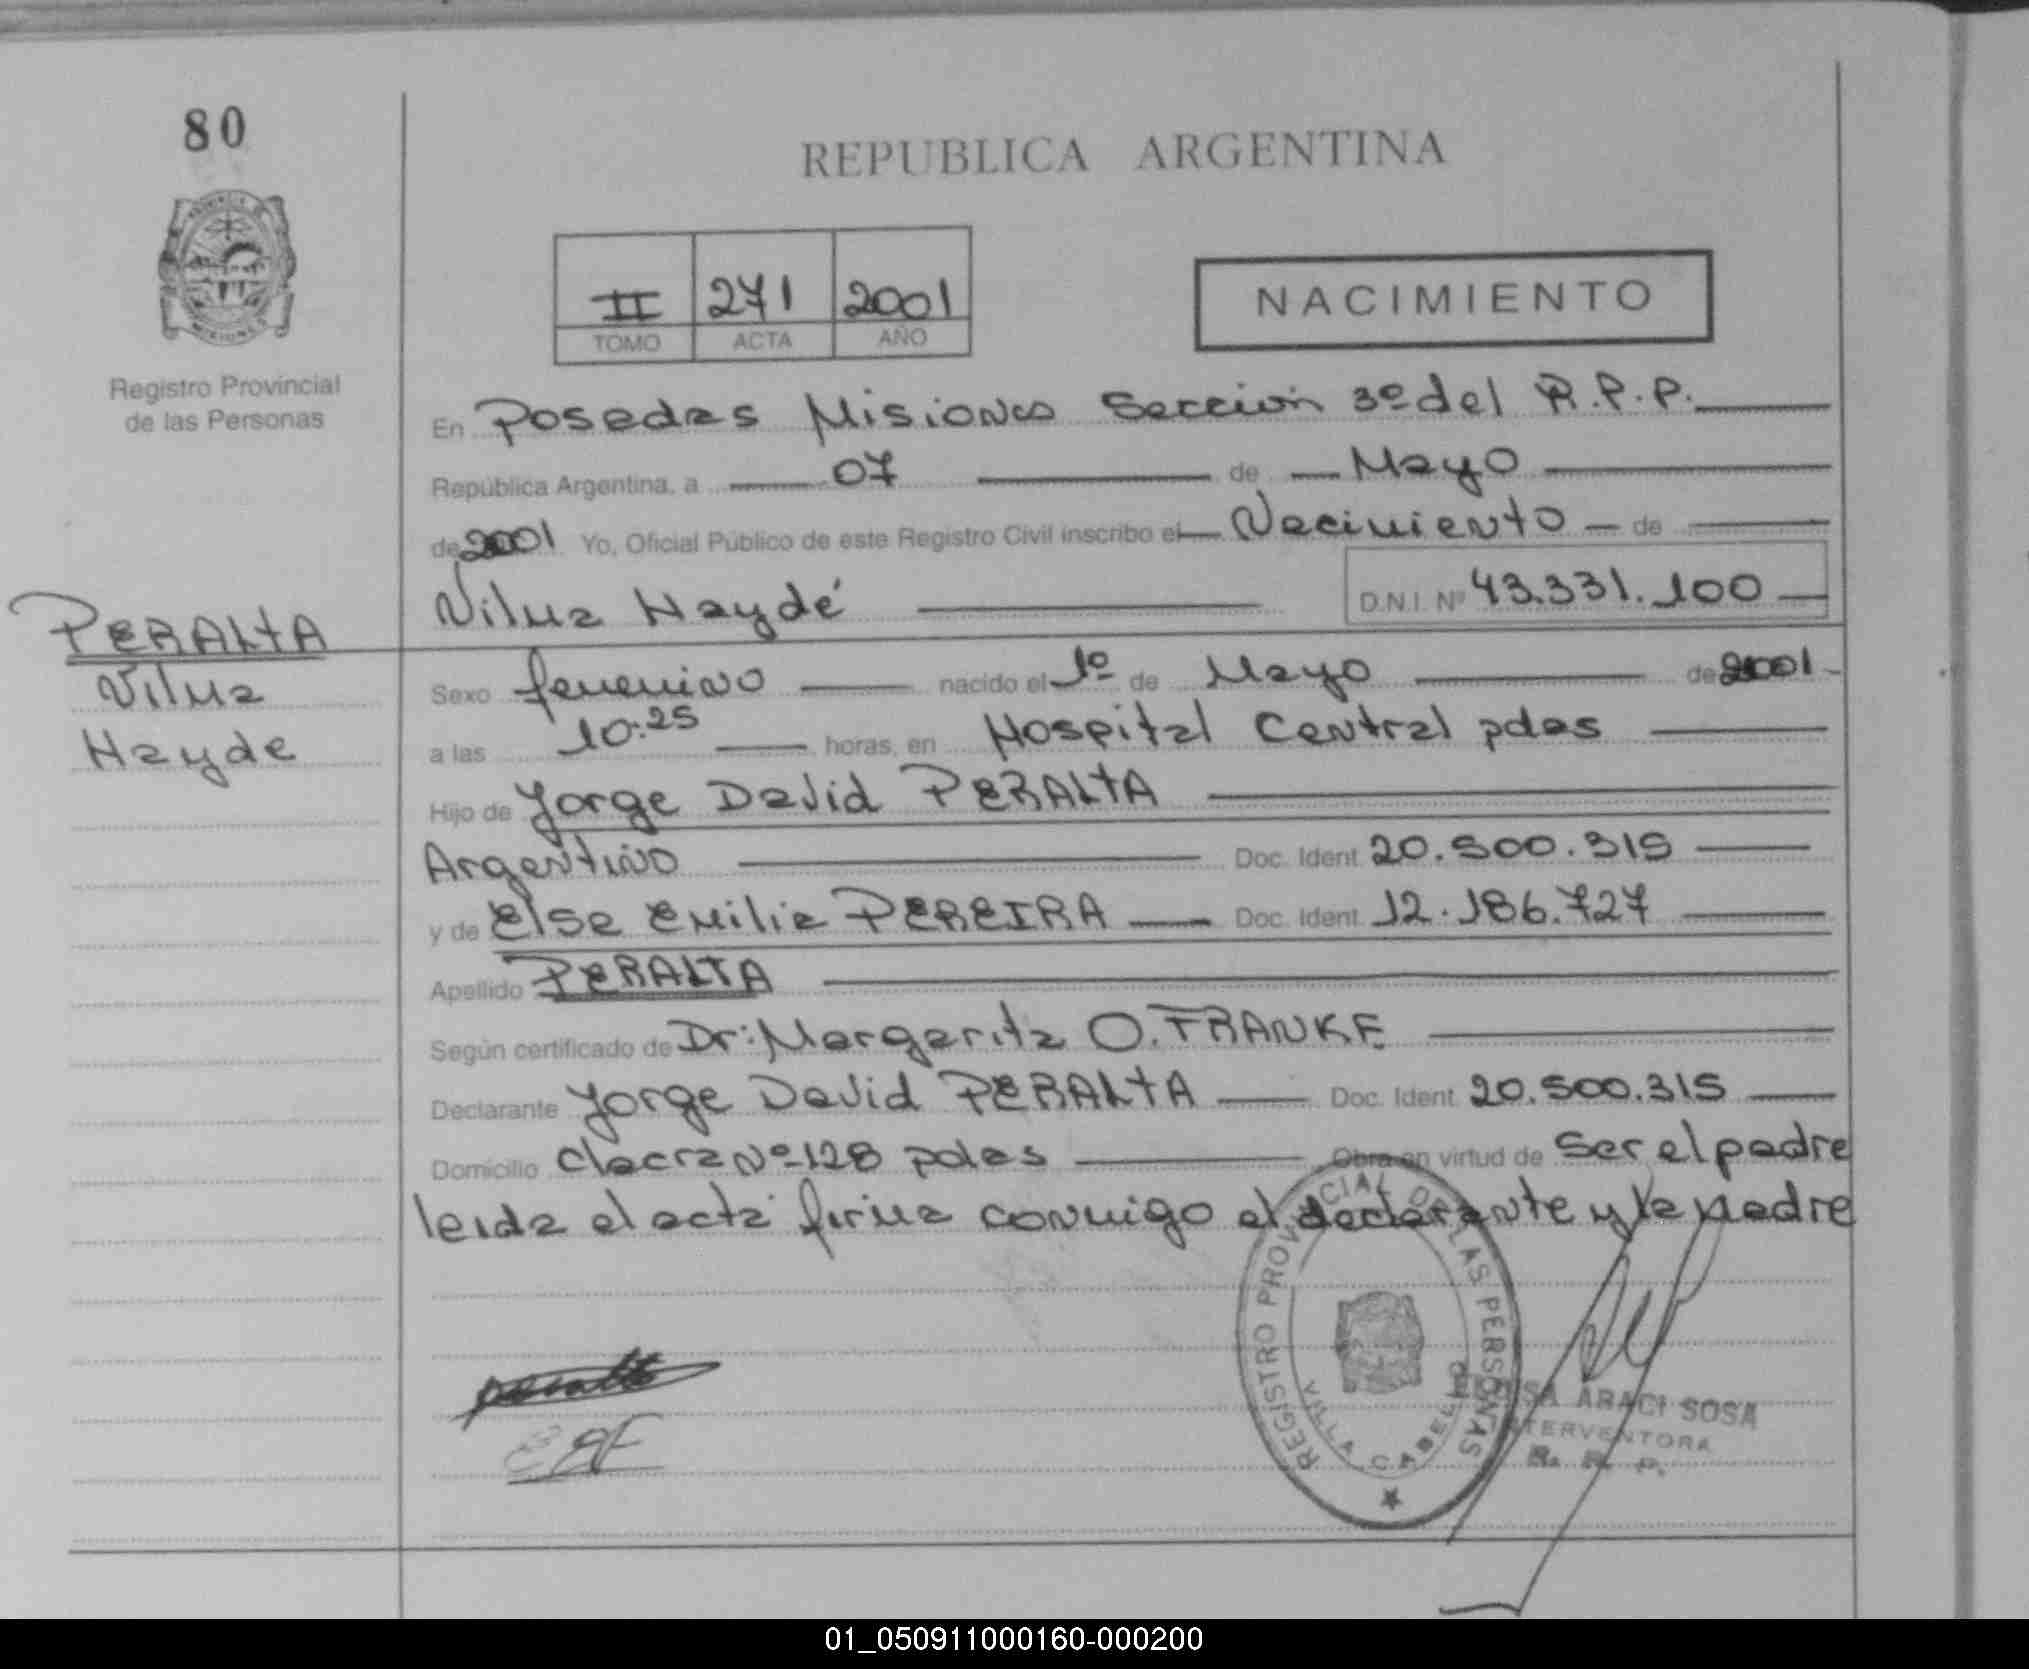 80
REPUBLICA ARGENTINA
II 271 2001
TOMO ACTA AÑO
NACIMIENTO
Registro Provincial
de las Personas
En Posadas Misiones Sección 3º del R.P.P.
República Argentina, a 07 de Mayo
de 2001 Yo, Oficial Público de este Registro Civil inscribo el Nacimiento de
Nilma Haydé D.N.I. Nº 43.331.100
PERALTA
Nilma
Hayde
Sexo femenino nacido el 1º de Mayo de 2001
a las 10:25 horas, en Hospital Central pdas
Hijo de Jorge David PERALTA
Argentino Doc. Ident. 20.500.315
y de Elsa Emilia PEREIRA Doc. Ident. 12.186.727
Apellido PERALTA
Según certificado de Dr: Margarita O. FRANKE
Declarante Jorge David PERALTA Doc. Ident. 20.500.315
Domicilio Chacra Nº 128 pdas Obra en virtud de Ser el padre
leida el acta firma conmigo el declarante y la madre
REGISTRO PROVINCIAL DE LAS PERSONAS
VILLA CABELLO
peralta
ARACI SOSA
INTERVENTORA
R. P.
01_050911000160-000200